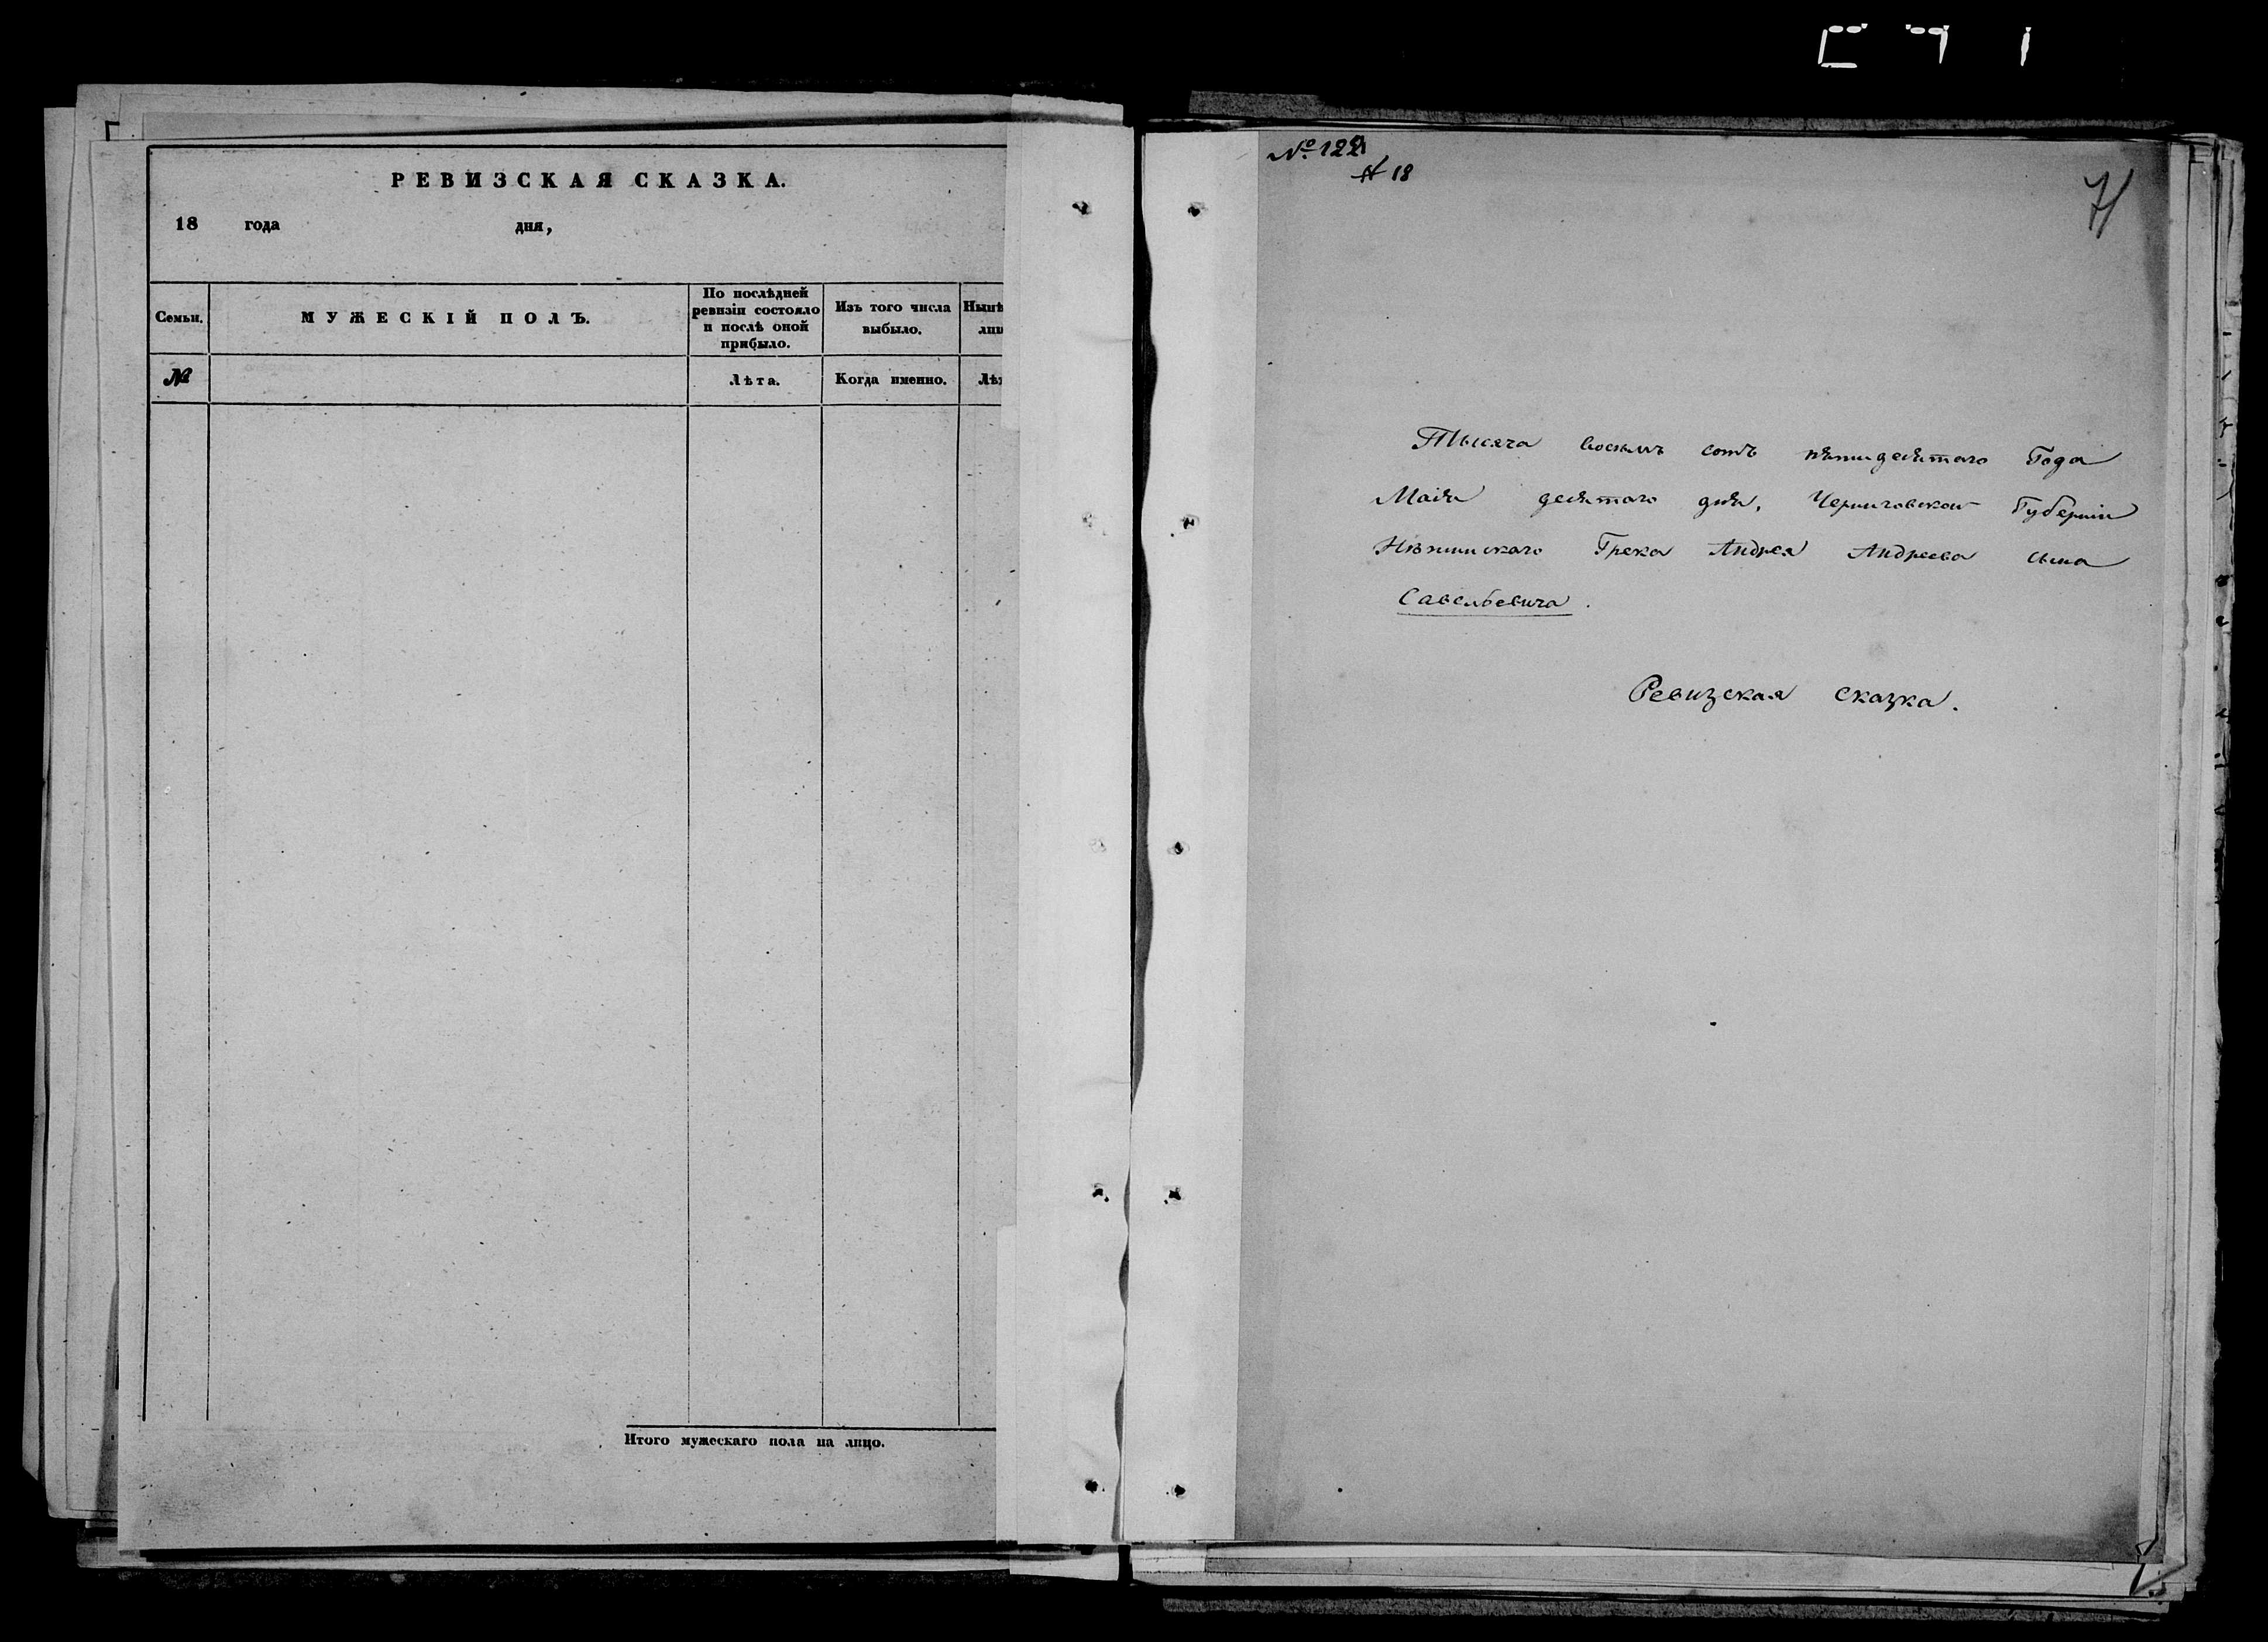 РЕВИЗСКАЯ СКАЗКА.
18 года дня,
Семьи.
МУЖЕСКІЙ ПОЛЪ.
По послѣдней
ревизіи состояло
и послѣ оной
прибыло.
Изъ того числа
выбыло.
Нынѣ
лиц
№
Лѣта.
Когда именно.
Лѣт
Итого мужескаго пола на лицо.
18
71
Тысяча восемь сотъ пятидесятаго Года
Маія десятаго дня, Черниговской Губерніи
Нѣжинскаго Грека Андрея Андреева сына
Савельевича.
Ревизская сказка.